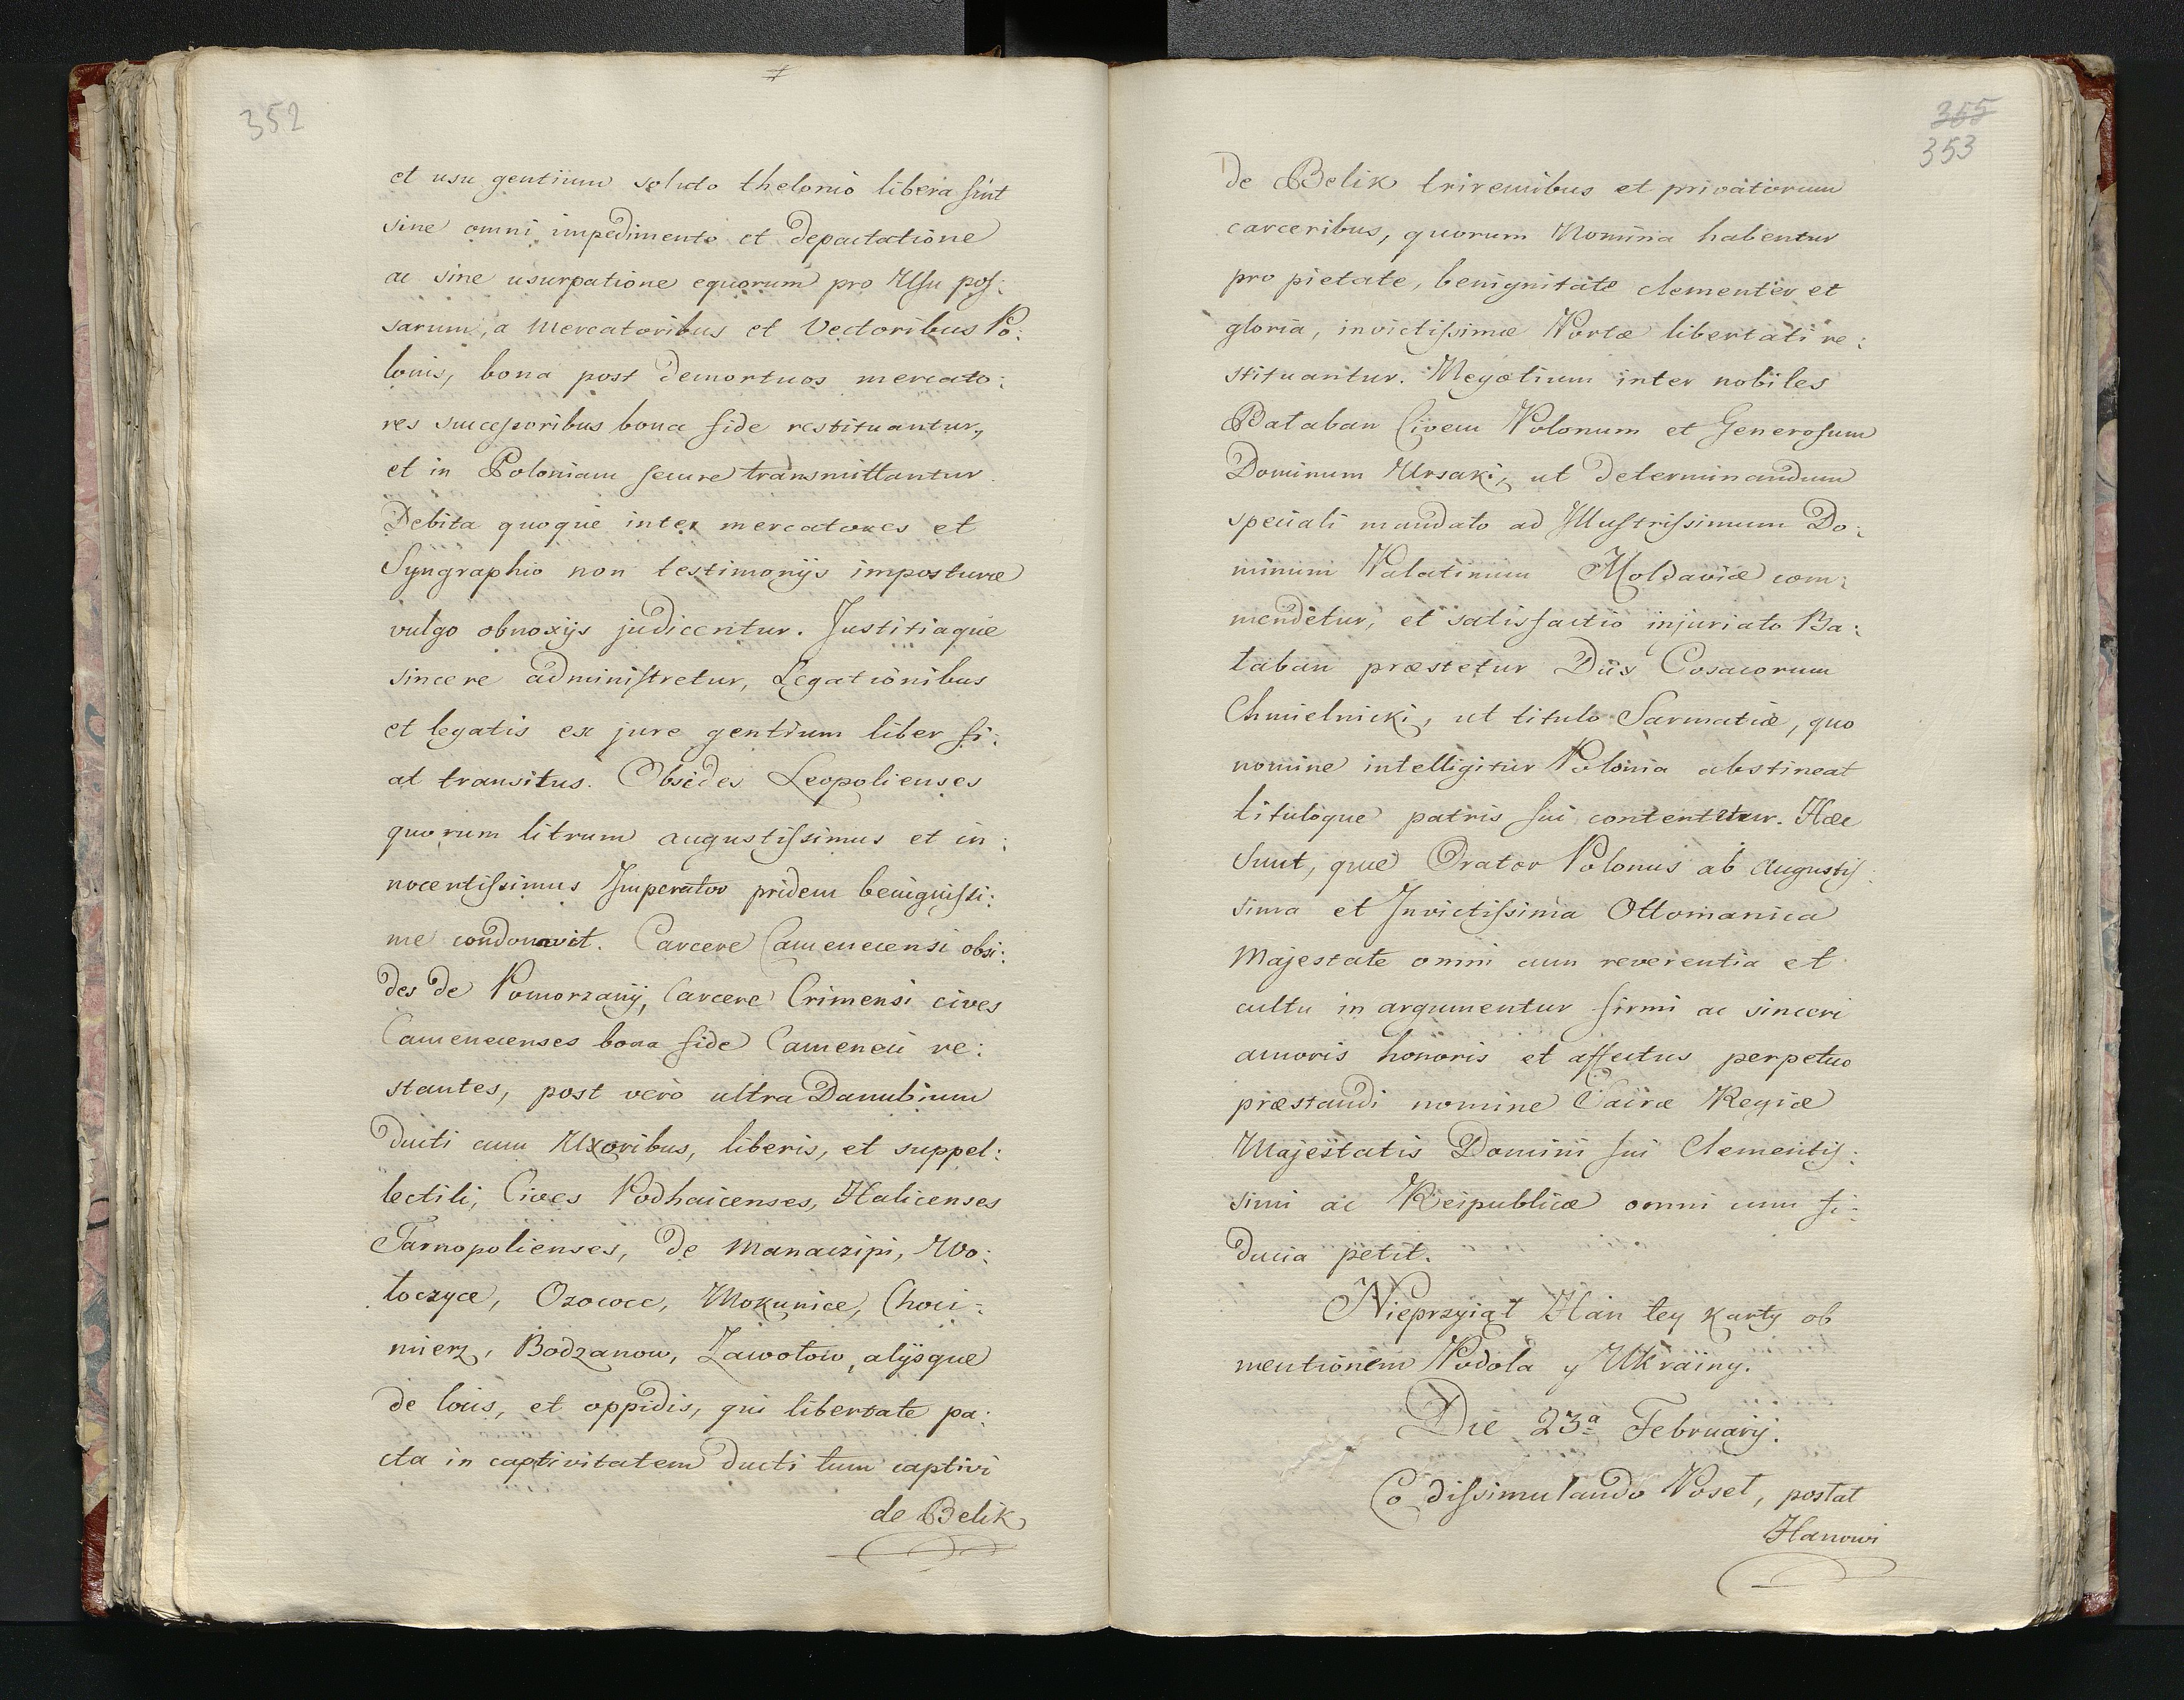 352
et usu gentium soluto thelonio libera sint
sine omni impedimento et depactatione
ac sine usurpatione equorum pro Usu pos:
sarum, a Mercatoribus et Vectoribus Po:
lonis, bona post demortuos mercato:
res successoribus bona fide restituantur,
et in Poloniam secure transmittantur.
Debita quoque inter mercatores et
Syngraphio non testimonijs imposturæ
vulgo obnoxijs judicentur. Justitiaque
sincere administretur, Legationibus
et legatis ex jure gentium liber fi:
at transitus. Obsides Leopolienses
quorum litrum augustissimus et in:
nocentissimus Imperator pridem benignissi:
me condonavit. Carcere Camenecensi obsi:
des de Pomorzanij, Carcere Crimensi cives
Camenecenses bona fide Camenecii re:
stantes, post vero ultra Danubium
ducti cum Uxoribus, liberis, et suppel:
lectili, Cives Podhaicenses, Halicenses
Tarnopolienses, de Manaczipi, Wo:
łoczyce, Ozococe, Mokunice, Choci:
mierz, Bodzanow, Zawotow, alijsque
de locis, et oppidis, qui libertate pa:
cta in captivitatem ducti tum captivi
de Belik
355
353
de Belik triremibus et privatorum
carceribus, quorum Nomina habentur
pro pietate, benignitate clementer et
gloria, invictissimæ Portæ libertati re:
stituantur. Negotium inter nobiles
Bataban Civem Polonum et Generosum
Dominum Ursaki, ut determinandum
speciali mandato ad Illustrissimum Do:
minum Palatinum Moldaviæ com:
mendetur, et satisfactio injuriato Ba:
taban præstetur Dux Cosacorum
Chmielnicki, ut titulo Sarmatiæ, quo
nomine intelligitur Polonia abstineat
tituloque patris sui contentetur. Hæc
Sunt, quæ Orator Polonus ab Augustis:
sima et Invictissima Ottomanica
Majestate omni cum reverentia et
cultu in argumentur firmi ac sinceri
amoris honoris et affectus perpetuo
præstandi nomine Sacræ Regiæ
Majestatis Domini sui Clementis:
simi ac Reipublicæ omni cum fi:
ducia petit.
Nieprzyiął Han tey karty ob
mentionem Podola y Ukrainy.
Die 23ª Februarij.
Co dissimulando Poseł, posłał
Hanowi